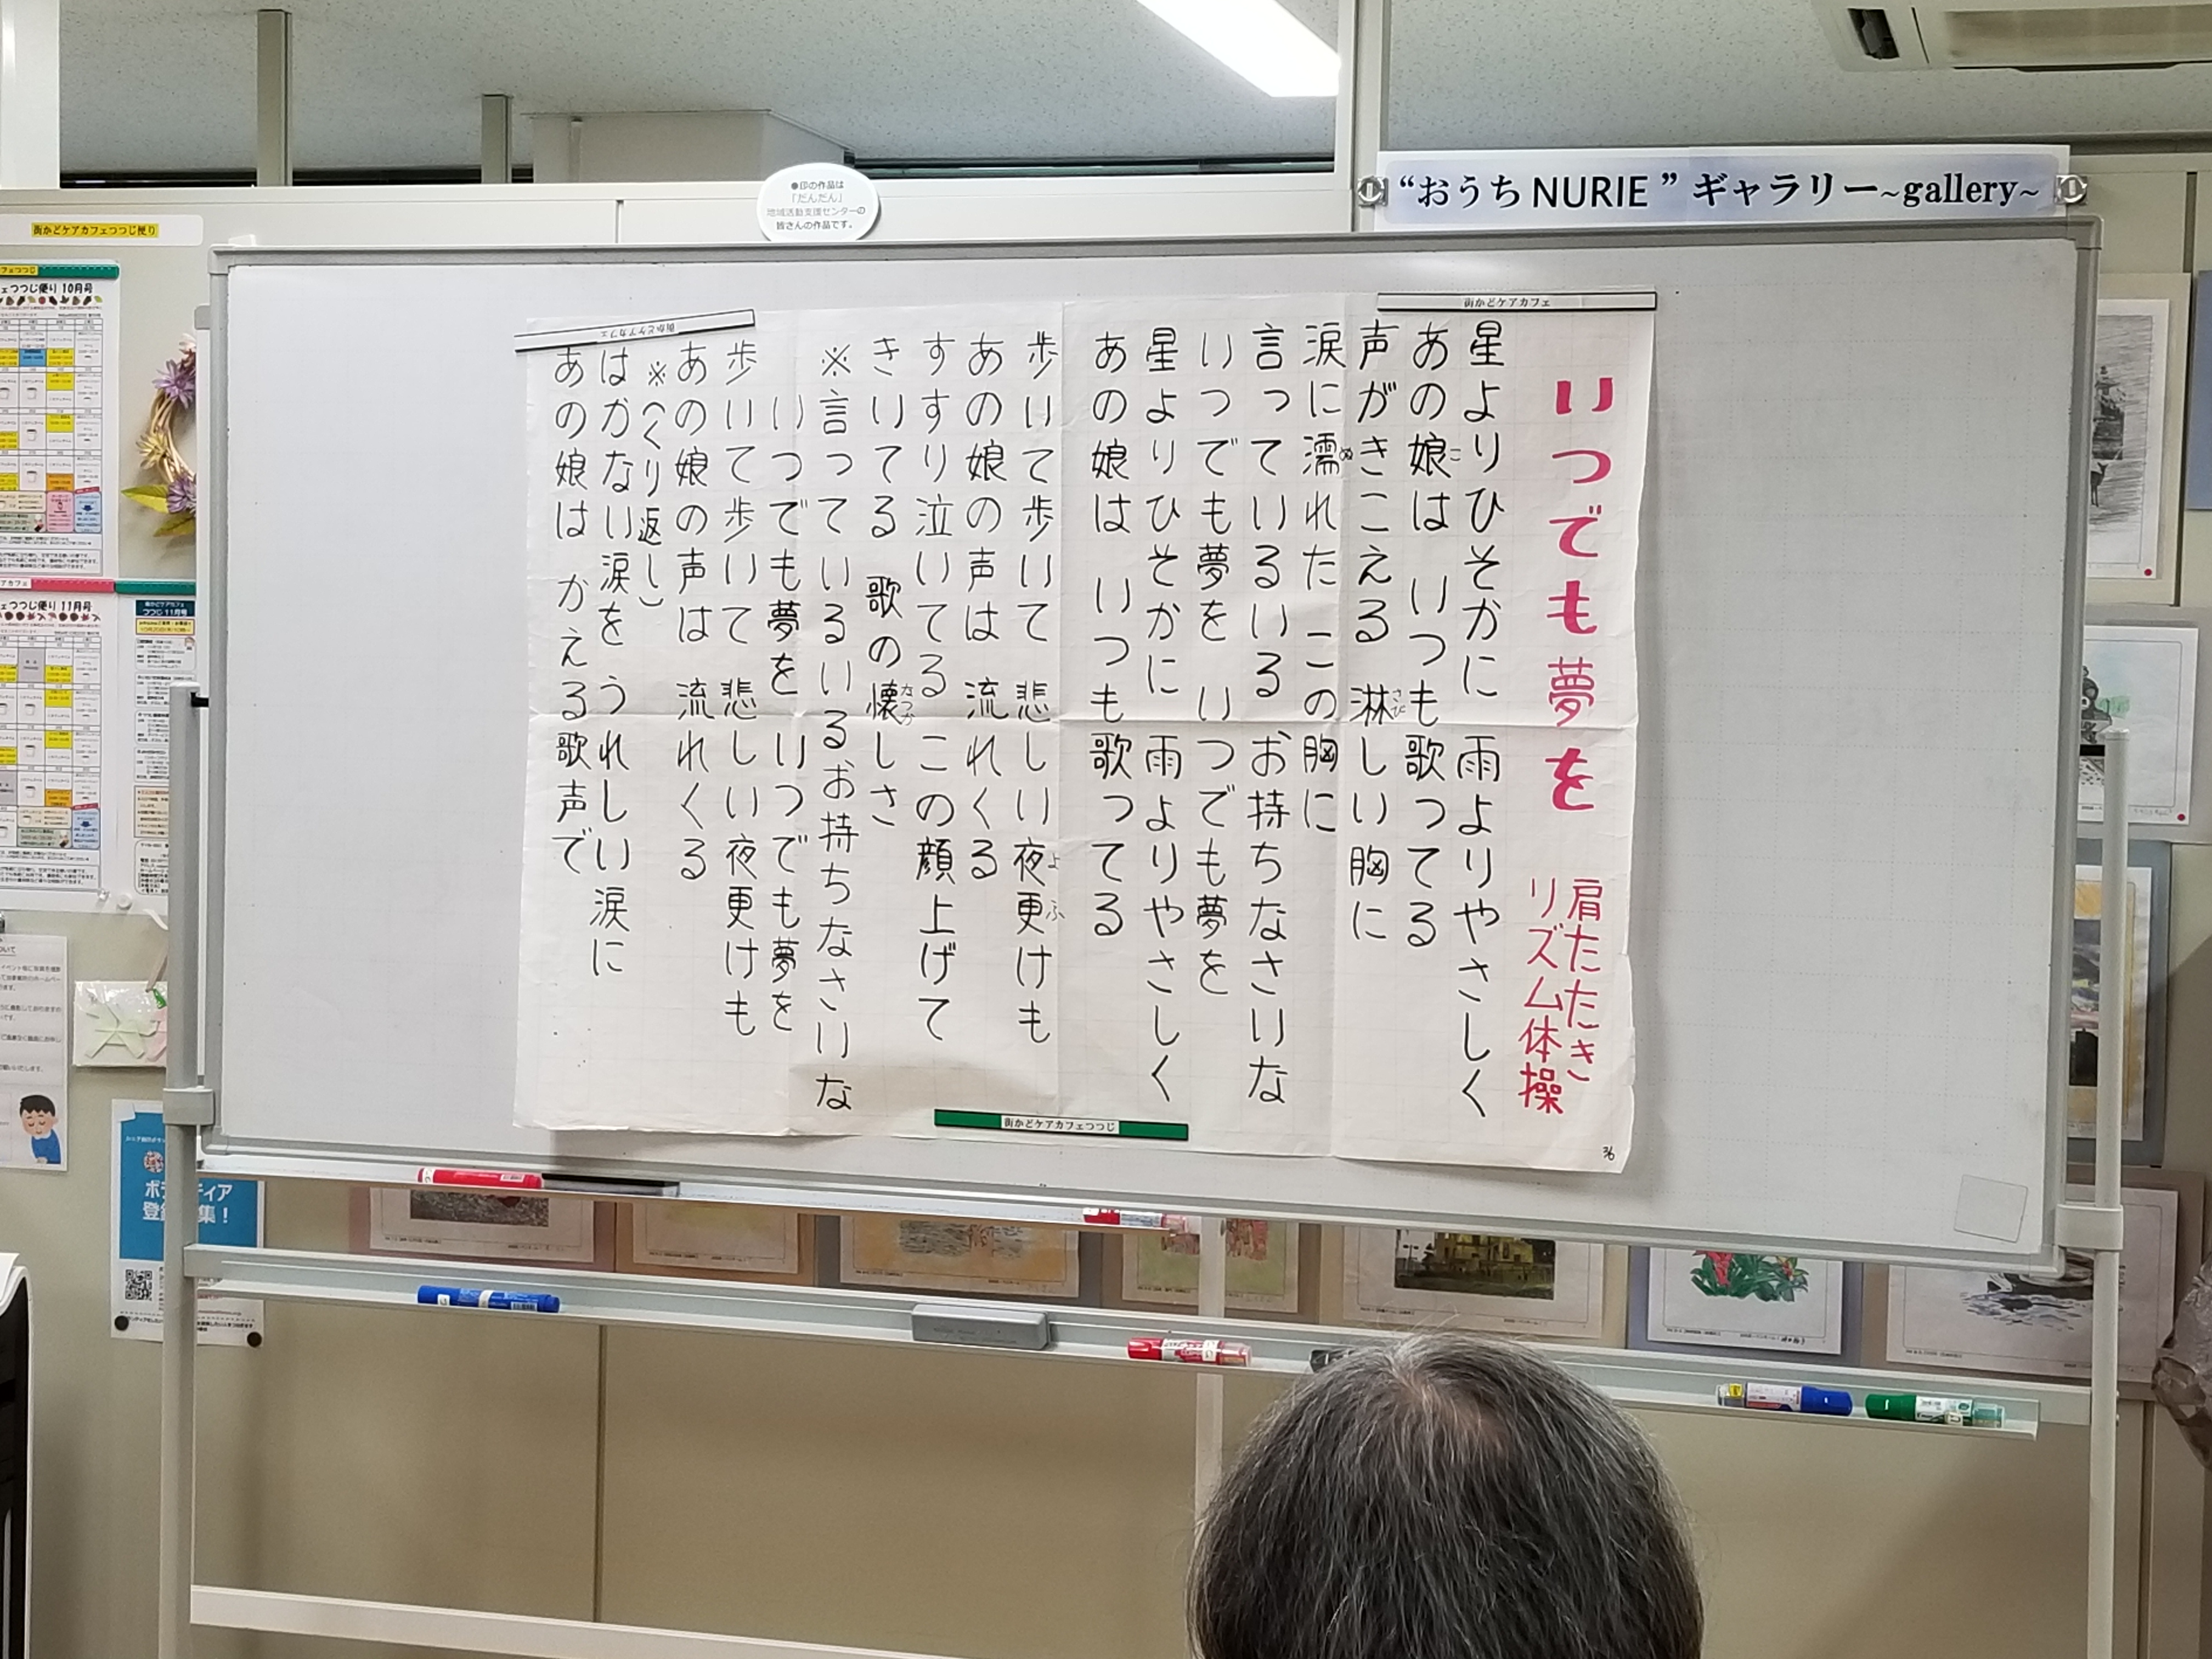 “おうちNURIE” ギャラリー~gallery~
●印の作品は
「だんだん」
地域活動支援センターの
皆さんの作品です。
街かどケアカフェつつじ便り
街かどケアカフェ
いつでも夢を
肩たたき
リズム体操
星よりひそかに 雨よりやさしく
あの娘は いつも歌ってる
声がきこえる 淋しい胸に
涙に濡れた この胸に
言っているいる お持ちなさいな
いつでも夢を いつでも夢を
星よりひそかに 雨よりやさしく
あの娘は いつも歌ってる
歩いて歩いて 悲しい夜更けも
あの娘の声は 流れくる
すすり泣いてる この顔上げて
きいてる 歌の懐しさ
※言っているいるお持ちなさいな
いつでも夢を いつでも夢を
歩いて歩いて 悲しい夜更けも
あの娘の声は 流れくる
※(くり返し)
はかない涙を うれしい涙に
あの娘は かえる歌声で
36
街かどケアカフェ
街かどケアカフェつつじ
ェつつじ便り 10月号
ェつつじ便り 11月号
つつじ 11月号